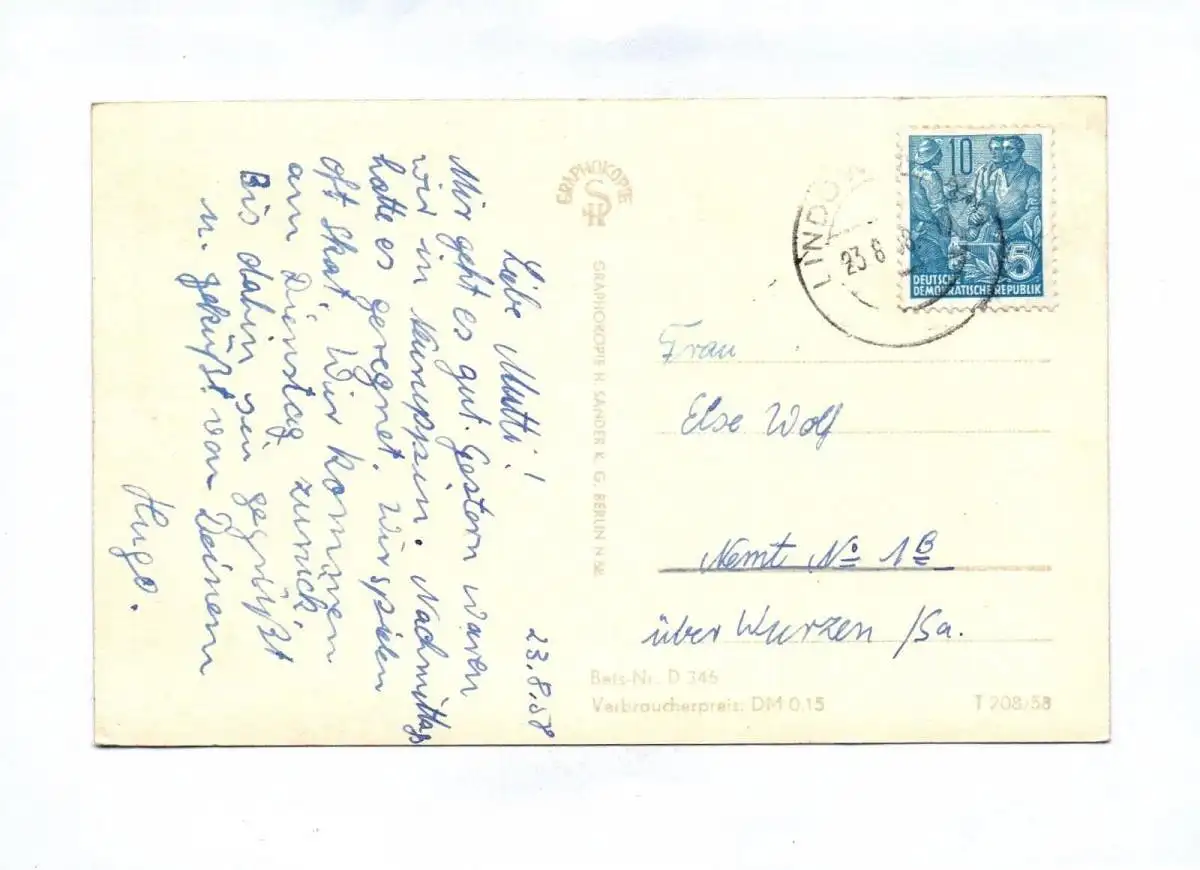 23.8.58
Liebe Mutti!
Mir geht es gut. Gestern waren
wir in Neuruppin. Nachmittags
hatte es geregnet. Wir spielen
oft Skat. Wir kommen
am Dienstag zurück.
Bis dahin sei gegrüßt
u. geküßt von Deinem
Hugo.
GRAPHOKOPIE
GRAPHOKOPIE H. SANDER K. G. BERLIN N
10
5
DEUTSCHE
DEMOKRATISCHE REPUBLIK
LINDOW
23.8.58
Frau
Else Wolf
Nemt No 1B
über Wurzen /Sa.
Bets-Nr. D 346
Verbraucherpreis: DM 0,15
T 208/58